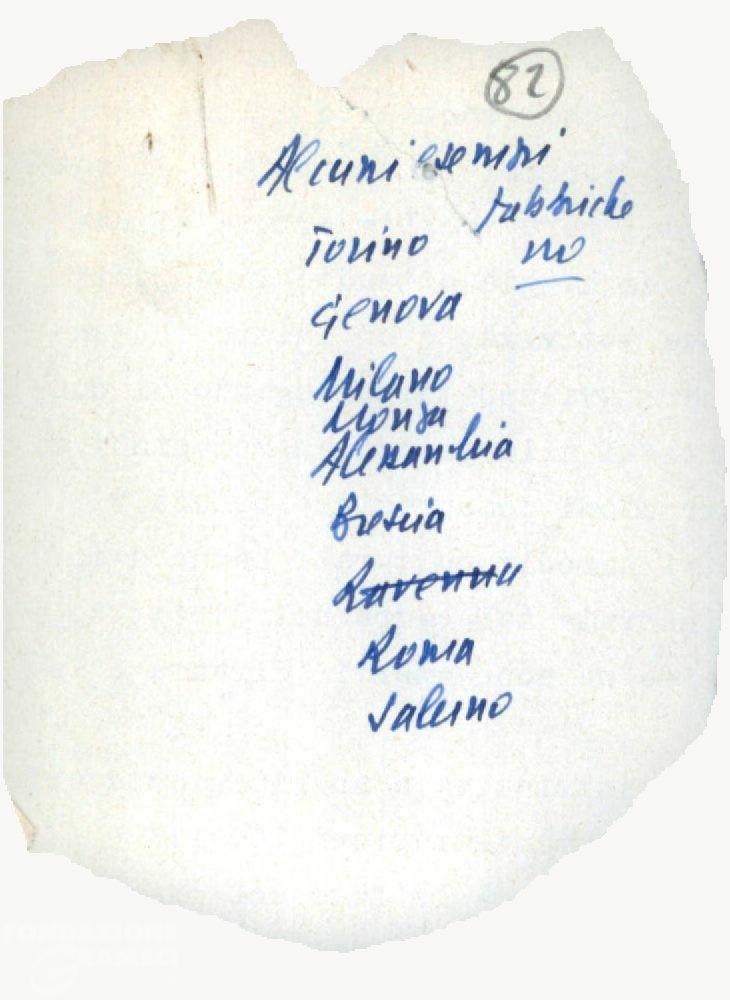 82
Alcuni esempi
fabbriche
Torino no
Genova
Milano
Monza
Alessandria
Brescia
Ravenna
Roma
Salerno
FONDAZIONE
GRAMSCI